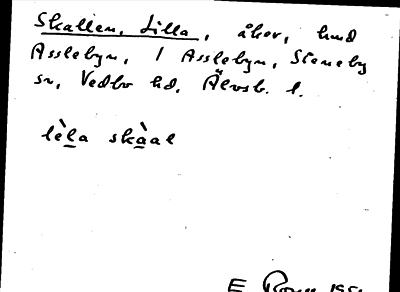 Skallen, Lilla, åker, hmd
Asslebyn, 1 Asslebyn, Steneby
sn, Vedbo hd, Älvsb. l.
lèla skàal
E